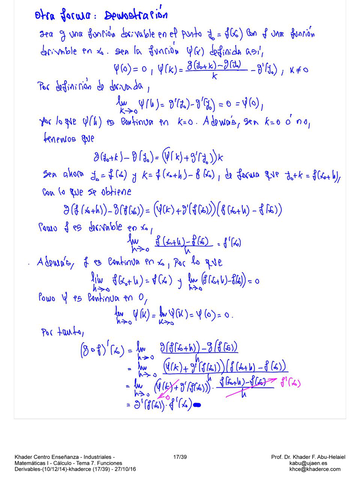 Otra forma: Demostración
Sea g una función derivable en el punto y₀ = f(x₀) con f una función
derivable en x₀. Sea la función φ(k) definida así,
φ(0) = 0, φ(k) = (g(y₀+k) - g(y₀))/k - g'(y₀), k ≠ 0
Por definición de derivada,
lim k→0 φ(k) = g'(y₀) - g'(y₀) = 0 = φ(0),
por lo que φ(k) es continua en k=0. Además, sea k=0 ó no,
tenemos que
g(y₀+k) - g(y₀) = (φ(k) + g'(y₀))k
Sea ahora y₀ = f(x₀) y k = f(x₀+h) - f(x₀), de forma que y₀+k = f(x₀+h),
con lo que se obtiene
g(f(x₀+h)) - g(f(x₀)) = (φ(k) + g'(f(x₀)))(f(x₀+h) - f(x₀))
Como f es derivable en x₀,
lim h→0 (f(x₀+h) - f(x₀))/h = f'(x₀)
Además, f es continua en x₀, por lo que
lim h→0 f(x₀+h) = f(x₀) y lim h→0 (f(x₀+h) - f(x₀)) = 0
Como φ es continua en 0,
lim h→0 φ(k) = lim k→0 φ(k) = φ(0) = 0.
Por tanto,
(g∘f)'(x₀) = lim h→0 (g(f(x₀+h)) - g(f(x₀)))/h
= lim h→0 (φ(k) + g'(f(x₀)))(f(x₀+h) - f(x₀))/h
= lim h→0 (φ(k) + g'(f(x₀))) · (f(x₀+h) - f(x₀))/h f'(x₀)
0
= g'(f(x₀)) · f'(x₀)
Khader Centro Enseñanza - Industriales - 17/39 Prof. Dr. Khader F. Abu-Helaiel
Matemáticas I - Cálculo - Tema 7. Funciones kabu@ujaen.es
Derivables-(10/12/14)-kharece (17/39) - 27/10/16 khce@kharece.com